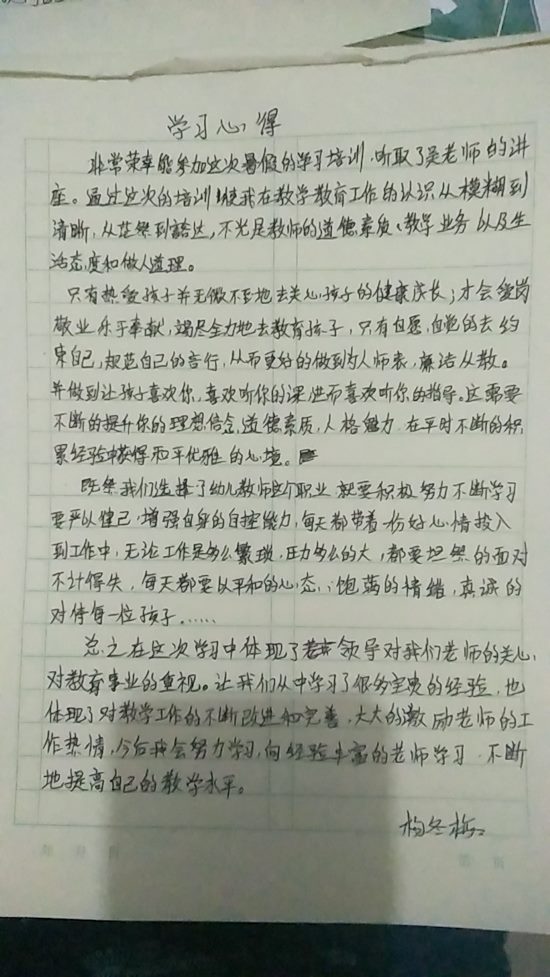 学习心得
非常荣幸能参加这次暑假的学习培训.听取了吴老师的讲
座。通过这次的培训使我在教学教育工作的认识从模糊到
清晰,从茫然到豁达,不光是教师的道德素质、教学业务以及生
活态度和做人道理。
只有热爱孩子并无微不至地去关心孩子的健康成长;才会爱岗
敬业乐于奉献,竭尽全力地去教育孩子,只有自愿,自觉的去约
束自己,规范自己的言行,从而更好的做到为人师表,廉洁从教。
并做到让孩子喜欢你,喜欢听你的课,进而喜欢听你的指导。这需要
不断的提升你的理想信念,道德素质,人格魅力.在平时不断的积
累经验中获得和平优雅的心境。
既然我们选择了幼儿教师这个职业 就要积极努力不断学习
要严以律己,增强自身的自控能力,每天都带着一份好心情投入
到工作中,无论工作是多么繁琐,压力多么的大,都要坦然的面对
不计得失,每天都要以平和的心态、饱满的情绪,真诚的
对待每一位孩子……
总之在这次学习中体现了领导对我们老师的关心,
对教育事业的重视。让我们从中学习了很多宝贵的经验,也
体现了对教学工作的不断改进和完善,大大的激励老师的工
作热情,今后我会努力学习,向经验丰富的老师学习.不断
地提高自己的教学水平。
杨冬梅